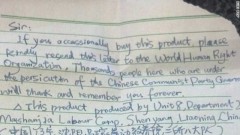 Sir:
If you occassionally buy this product, please
kindly resend this letter to the World Human Right
Organization. Thousands people here who are under
the persicution of the Chinese Communist Party Government
will thank and remember you forever.
This product produced by Unit 8, Department 2,
Mashanjia Labour Camp, Shenyang, Liaoning, China
中国,